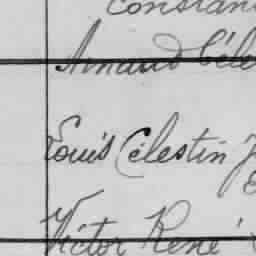 Constan
Arnaud Céle
Louis Célestin J
Victor René